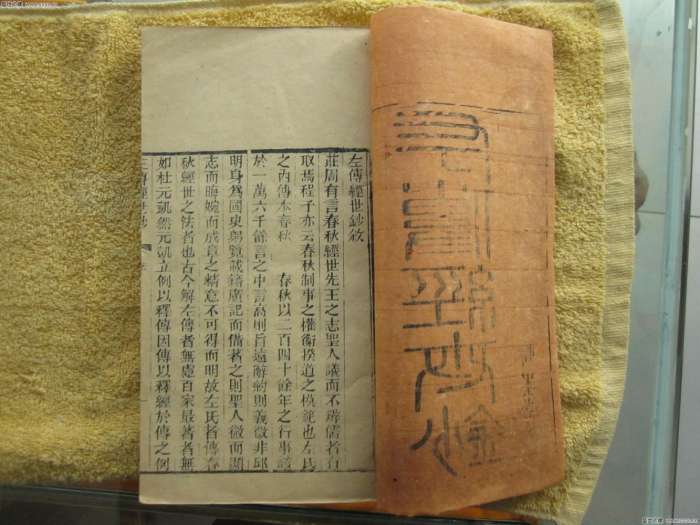 左傳經世鈔敘
莊周有言春秋經世先王之志聖人議而不辨儒者有
取焉程子亦云春秋制事之權衡揆道之模範也左氏
之內傳本春秋　春秋以二百四十餘年之行事該
於一萬六千餘言之中言高則旨遠辭約則義微非邱
明身爲國史躬覽載籍廣記而備著之則聖人微而顯
志而晦婉而成章之精意不可得而明故左氏者傳春
秋經世之法者也古今解左傳者無慮百家最著者無
如杜元凱然元凱立例以釋傳因傳以釋經於傳之例
左傳經世鈔